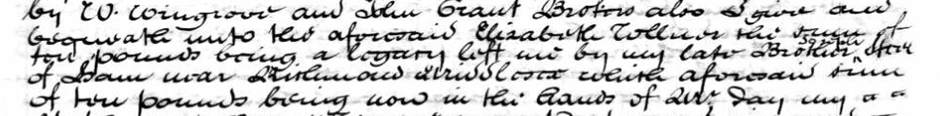 by W. Wingrove and John Grant Brokers also I give and
bequeath unto the aforesaid Elizabeth Tollner the sum of
ten pounds being a legacy left me by my late Brother
of Ham near Richmond which aforesaid sum
of ten pounds being now in the hands of Mr. Day my